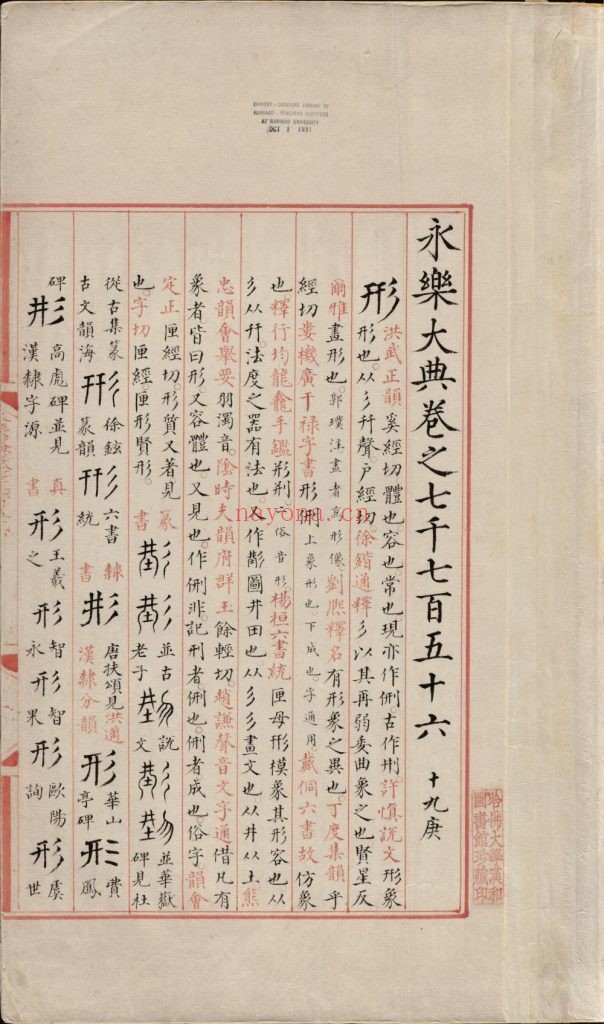 CHINESE-JAPANESE LIBRARY OF
HARVARD-YENCHING INSTITUTE
AT HARVARD UNIVERSITY
OCT 1 1931
永樂大典卷之七千七百五十六 十九庚
形 洪武正韻奚經切體也容也常也現亦作侀古作㓝許慎說文形象
形也从彡幵聲户經切徐鍇通釋彡以其再弱委曲象之也賢星反
爾雅畫形也郭璞注畫者為形像劉熙釋名有形象之異也丁度集韻乎
經切婁機廣干禄字書形侀上象形也下成也字通用戴侗六書故仿象
也釋行均龍龕手鑑形刑二俗音形楊桓六書統匣母形模象其形容也从
彡从幵法度之器有法也又作㓝圖井田也从彡彡畫文也从井从土熊
忠韻會舉要羽濁音陰時夫韻府群玉餘輕切趙謙聲音文字通借凡有
象者皆曰形又容體也又見也作侀非記刑者侀也侀者成也俗字韻會
定正匣經切形質又著見
也字切匣經匣形賢形
篆書 並古老子 說文 並華嶽碑見杜
從古集篆 徐鉉 隸書 唐扶頌見洪邁 華山亭碑 費鳳
古文韻海 篆韻 六書統 漢隸分韻
碑 高彪碑並見漢隸字源 真書 形王羲之 形智永 形智果 形歐陽詢 形虞世
哈佛大學漢和
圖書館珍藏印
nayona.cn